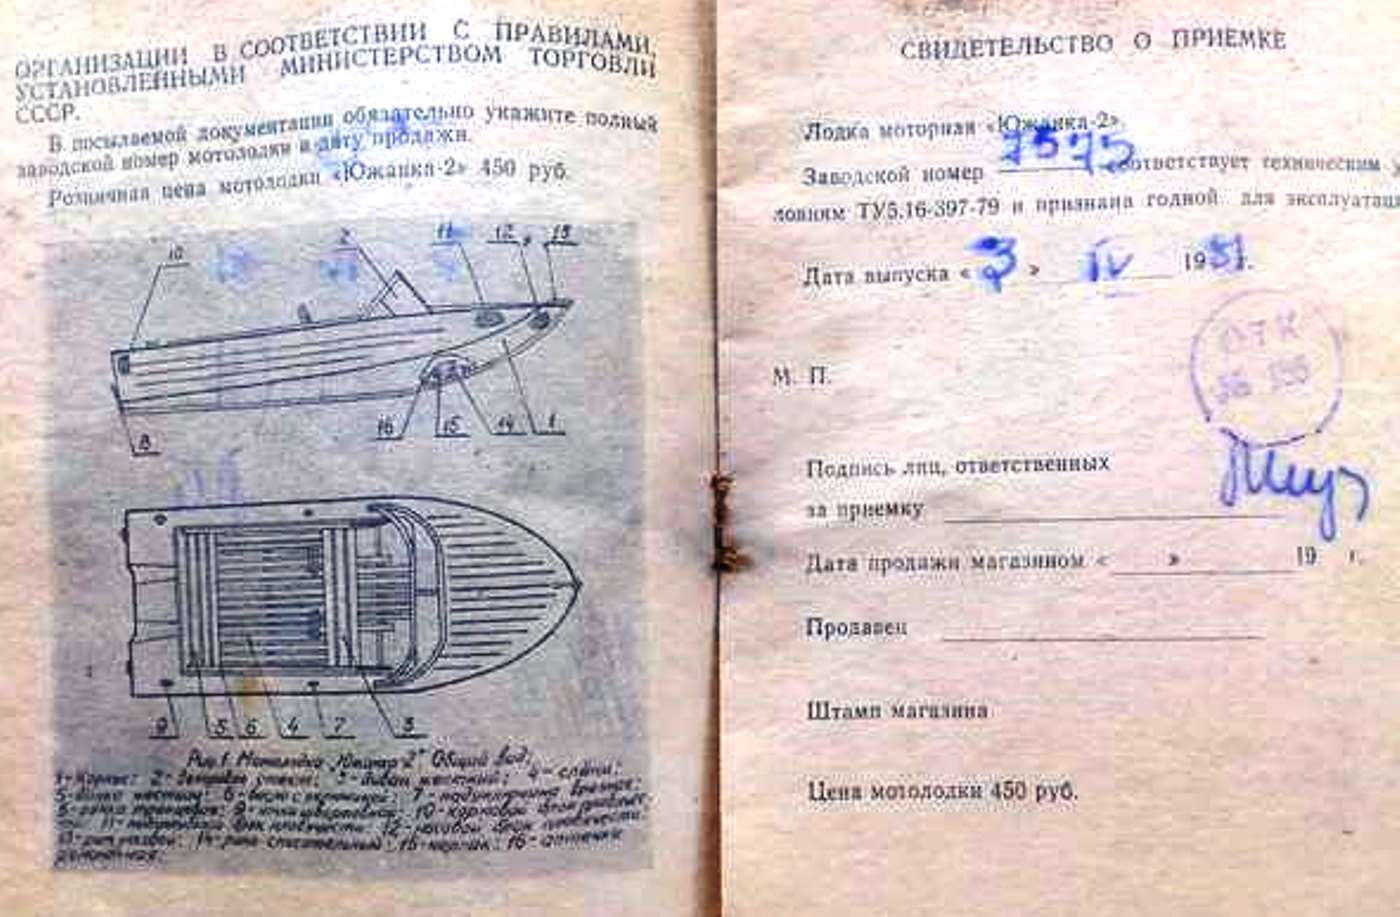 ОРГАНИЗАЦИИ В СООТВЕТСТВИИ С ПРАВИЛАМИ,
УСТАНОВЛЕННЫМИ МИНИСТЕРСТВОМ ТОРГОВЛИ
СССР.
В посылаемой документации обязательно укажите полный
заводской номер мотолодки и дату продажи.
Розничная цена мотолодки «Южанка-2» 450 руб.
10 2 11 12 13
8 16 15 14 1
9 5 6 4 7 3
Рис. 1. Мотолодка "Южанка-2" Общий вид:
1-корпус: 2-ветровое стекло; 3-диван жесткий; 4-слани;
10-кормовой блок
12-носовой блок плавучести
14-круг спасательный:
СВИДЕТЕЛЬСТВО О ПРИЕМКЕ
Лодка моторная «Южанка-2».
Заводской номер 7575 соответствует техническим у
ловиям ТУ5.16-397-79 и признана годной для эксплуатаци
Дата выпуска « 3 » IV 1981.
ОТК
М. П.
Подпись лиц, ответственных
за приемку
Дата продажи магазином « » 19 г.
Продавец
Штамп магазина
Цена мотолодки 450 руб.